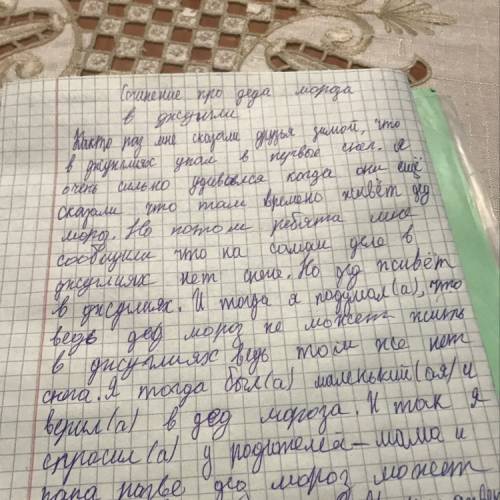 Сочинение про деда мороза
в джунгли
Както раз мне сказали друзья зимой, что
в джунглиях упал в первые снег. Я
очень сильно удивовлся когда они ещё
сказали что там времено живёт дед
мороз. Но потом ребята мне
сообщили что на самам деле в
джунглиях нет снега. Но дед живёт
в джуглиях. И тогда я подумал(а), что
ведь дед мороз не может жить
в джунглиях ведь там же нет
снега. Я тогда был(а) маленький(ая) и
верил(а) в дед мороза. И так я
спросил(а) у родителей - мама и
папа разве дед мороз может